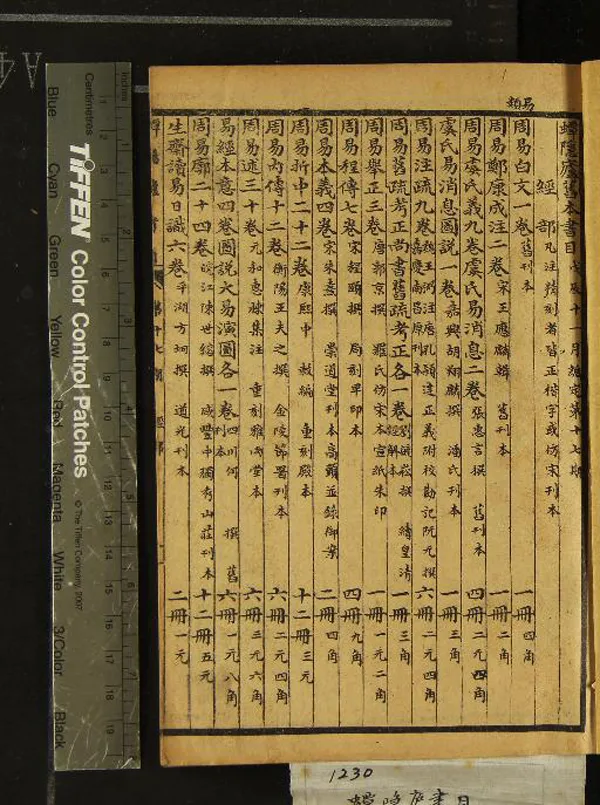 易類
蟫隱廬舊本書目 戊辰十一月編定第十七期
經部 凡注精刻者皆正楷字或仿宋刊本
周易白文一卷 舊刊本 一冊 四角
周易鄭康成注二卷 宋王應麟輯 舊刊本 一冊 二角
周易虞氏義九卷虞氏易消息二卷 張惠言撰 舊刊本 四冊 二元四角
虞氏易消息圖說一卷 嘉興胡祥麟撰 潘氏刊本 一冊 三角
周易注疏九卷 魏王弼注唐孔穎達正義附校勘記阮元撰 嘉慶南昌原刊本 六冊 二元四角
周易舊疏考正尚書舊疏考正各一卷 劉毓崧撰 續皇清經解本 一冊 三角
周易舉正三卷 唐郭京撰 羅氏仿宋本宣紙朱印 一冊 一元二角
周易程傳七卷 宋程頤撰 局刻單印本 四冊 九角
周易本義四卷 宋朱熹撰 崇道堂刊本高頭並錄御案 二冊 四角
周易折中二十二卷 康熙中敕編 重刻殿本 十二冊 三元
周易內傳十二卷 衡陽王夫之撰 金陵節署刊本 六冊 二元四角
周易述三十卷 元和惠棟集注 重刻雅雨堂本 六冊 三元六角
易經本意四卷圖說大易演圖各一卷 四川何 撰 舊刊本 六冊 一元八角
周易廓二十四卷 皖江陳世鎔撰 咸豐中獨秀山莊刊本 十二冊 五元
生齋讀易日識六卷 平湖方坰撰 道光刊本 二冊 一元
第十七期 經部 一
1230
蟫隱廬書目
A4
Inches
Centimetres
TIFFEN Color Control Patches
© The Tiffen Company, 2007
Blue
Cyan
Green
Yellow
Red
Magenta
White
3/Color
Black